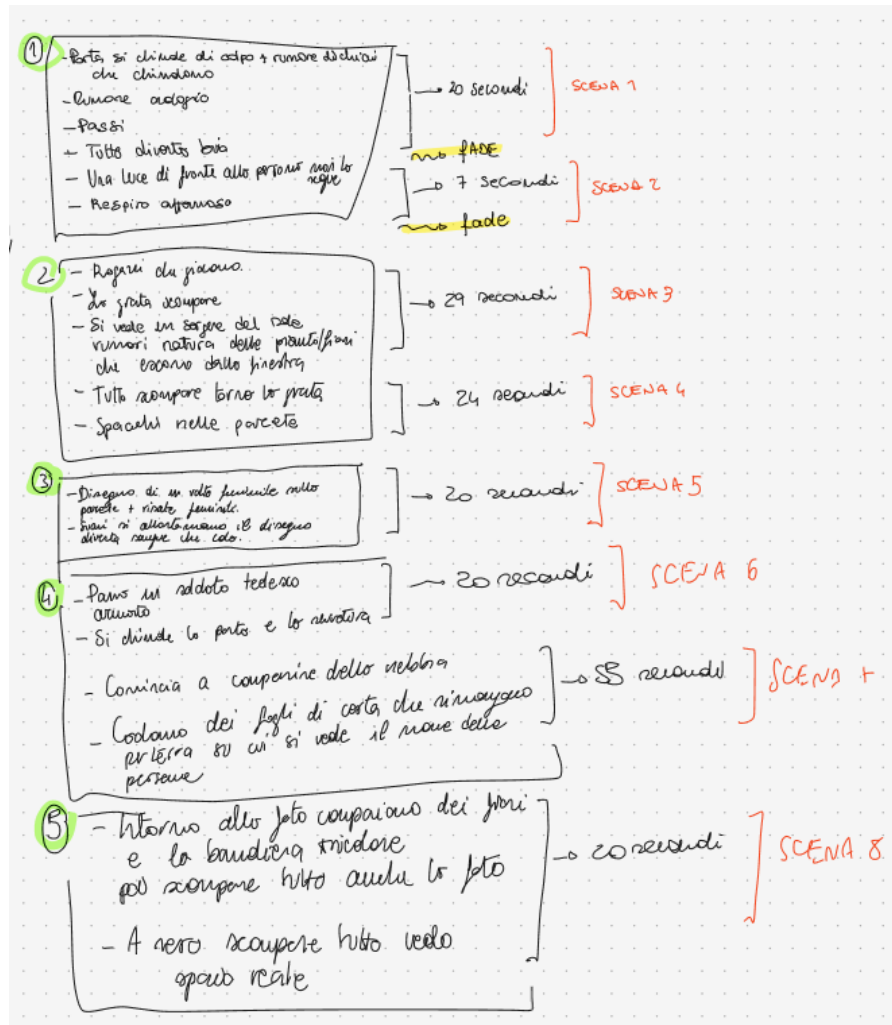 1
- Porta si chiude di colpo + rumore di chiavi
che chiudono
- Rumore orologio
- Passi
- Tutto diventa buio
- Una luce di fronte alla persona
- Respiro affannoso
→ 20 secondi
SCENA 1
FADE
→ 7 secondi
SCENA 2
fade
2
- Ragazzi che giocano.
- La grata scompare
- Si vede un sorgere del sole
rumori natura delle piante/fiori
che escono dalla finestra
- Tutto scompare torna la grata
- Spacchi nelle parete
→ 29 secondi
SCENA 3
→ 24 secondi
SCENA 4
3
- Disegno di un volto femminile sulla
parete + risate femminili.
- Suoni si allontanano il disegno
diventa sangue che cola.
→ 20 secondi
SCENA 5
4
- Passa un soldato tedesco
armato
- Si chiude la porta e la serratura
→ 20 secondi
SCENA 6
- Comincia a comparire della nebbia
- Cadano dei fogli di carta che rimangono
per terra su cui si vede il nome delle
persone
→ 55 secondi
SCENA 7
5
- Intorno alla foto compaiono dei fiori
e la bandiera tricolore
poi scompare tutto anche la foto
- A nero scompare tutto vedo
spazio reale
→ 20 secondi
SCENA 8